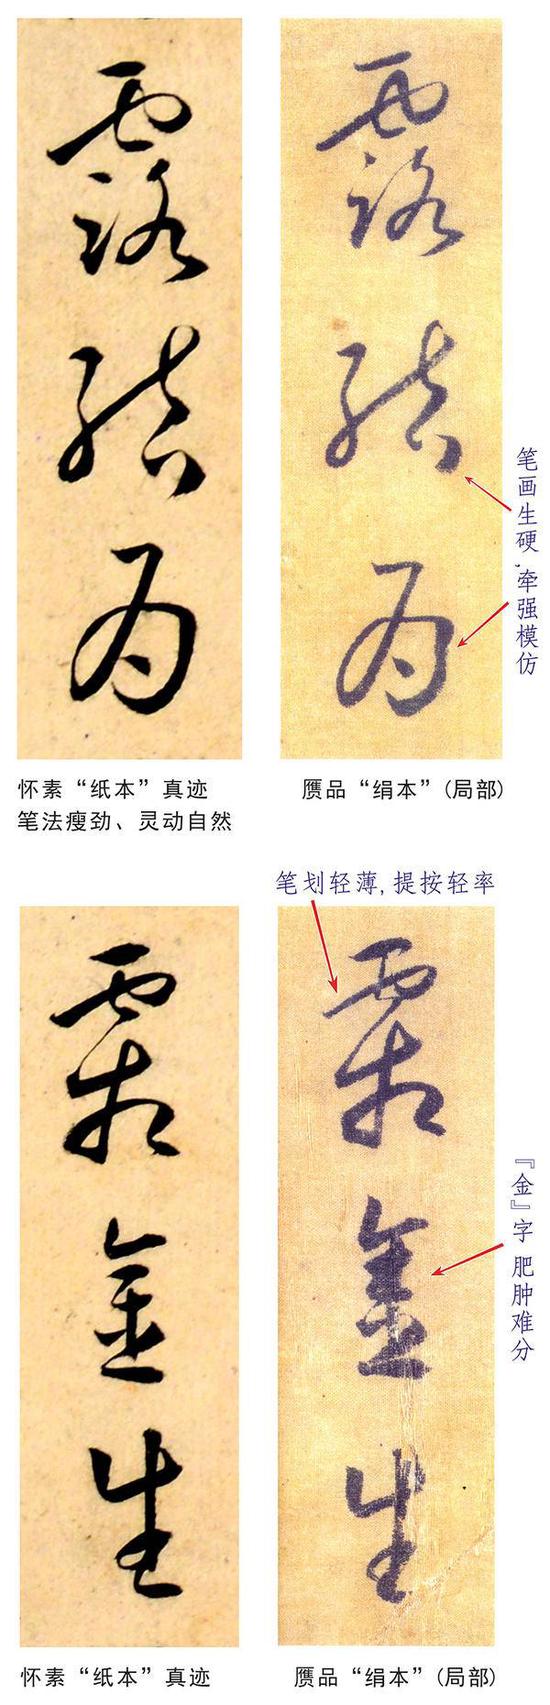 露结为
露结为
笔画生硬,牵强模仿
怀素“纸本”真迹
笔法瘦劲、灵动自然
赝品“绢本”(局部)
笔划轻薄,提按轻率
霜金生
霜金生
『金』字 肥肿难分
怀素“纸本”真迹
赝品“绢本”(局部)